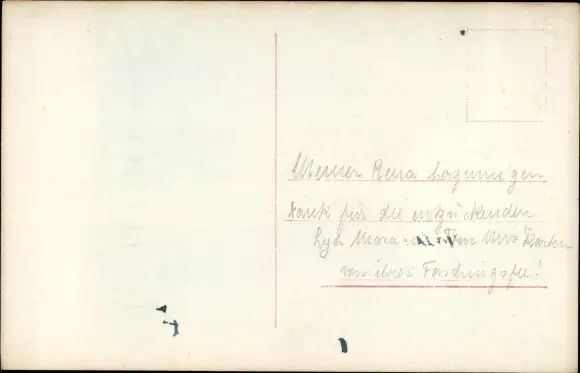 Meiner Rena herzinnigen
Dank für die entzückenden
Lya Mara und Mia Karten
von ihrer Faschingsfee!